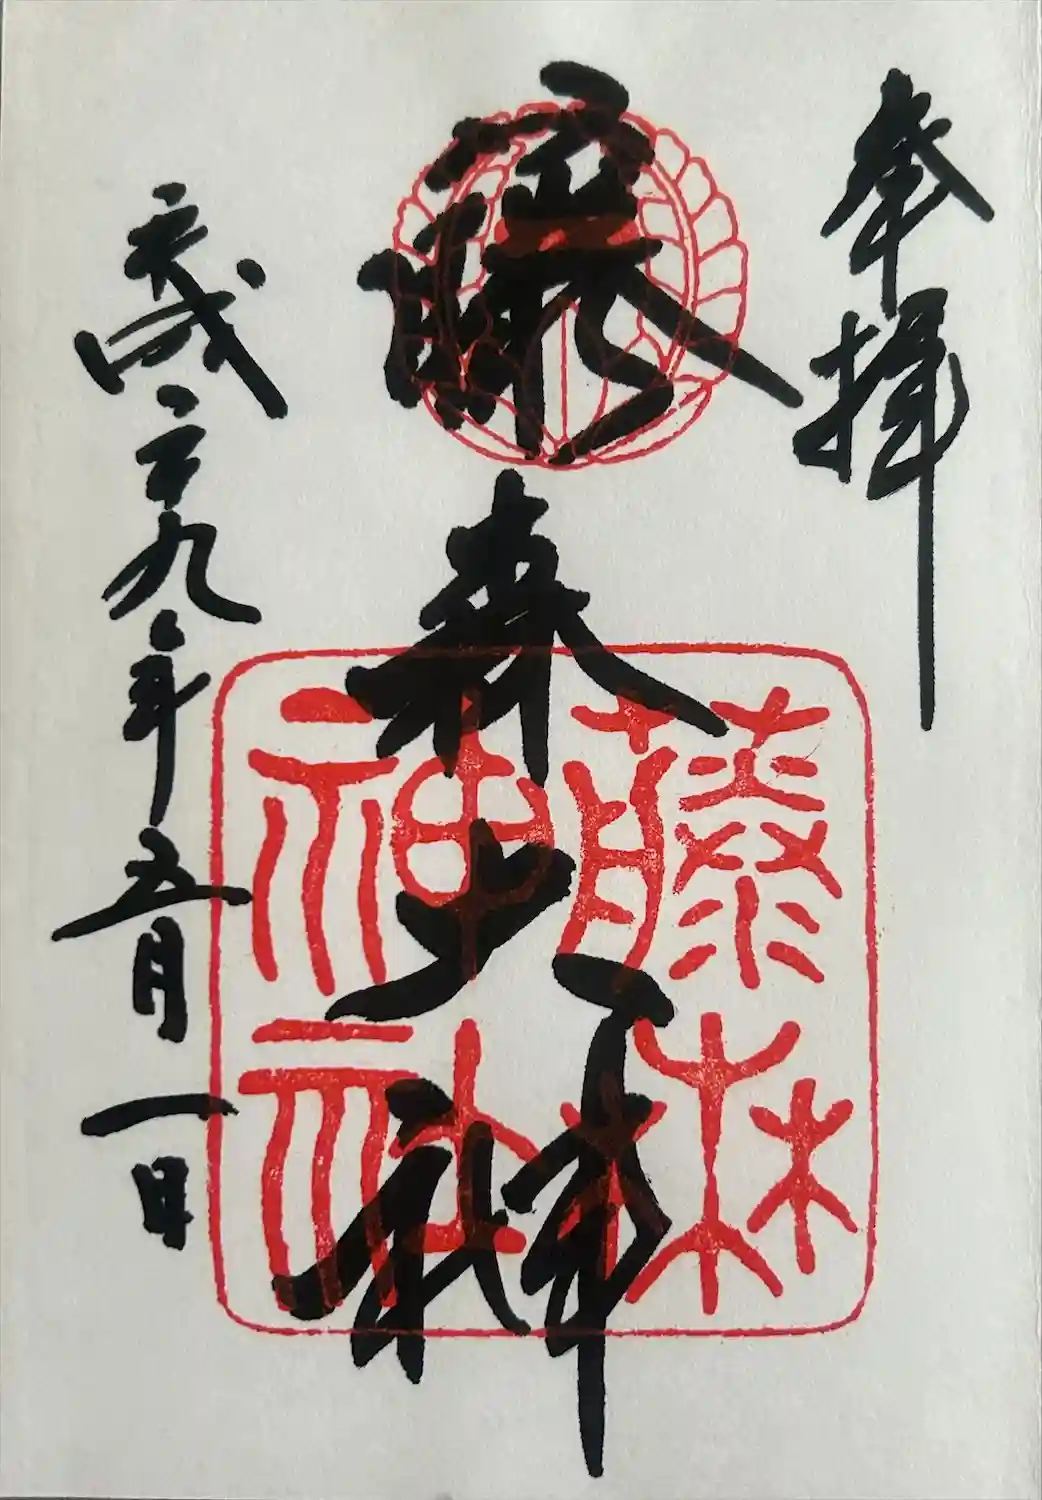 奉拝
藤森大神
平成二九年五月一日
藤森
神社